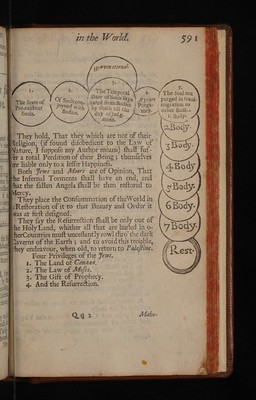 in the World. 591
Heaven eternal.
1.
The State of
Præexistent
Souls.
2.
Of Souls com-
pounded with
Bodies.
3.
The Temporal
State of Souls sepa-
rated from Bodies
by death till the
day of judg-
ment.
4.
Purga-
tory.
5.
The Soul not
purged is
migration to
other Bodies
1. Body.
2 Body.
3 Body.
4 Body
5 Body.
6 Body.
7 Body.
Rest.
They hold, That they which are not of their
Religion, (if found disobedient to the Law of
Nature, I suppose my Author means) shall suf-
fer a total Perdition of their Being; themselves
are liable only to a lesser Happiness.
Both Jews and Moors are of Opinion, That
the Infernal Torments shall have an end, and
that the fallen Angels shall be then restored to
Mercy.
They place the Consummation of the World in
a Restoration of it to that Beauty and Order it
was at first designed.
They say the Resurrection shall be only out of
the Holy Land, whither all that are buried in o-
ther Countries must uncessantly rowl thro' the dark
Caverns of the Earth; and to avoid this trouble,
they endeavour, when old, to return to Palestine.
Four Privileges of the Jews.
1. The Land of Canaan.
2. The Law of Moses.
3. The Gift of Prophecy.
4. And the Resurrection.
Qq 2 Maho-